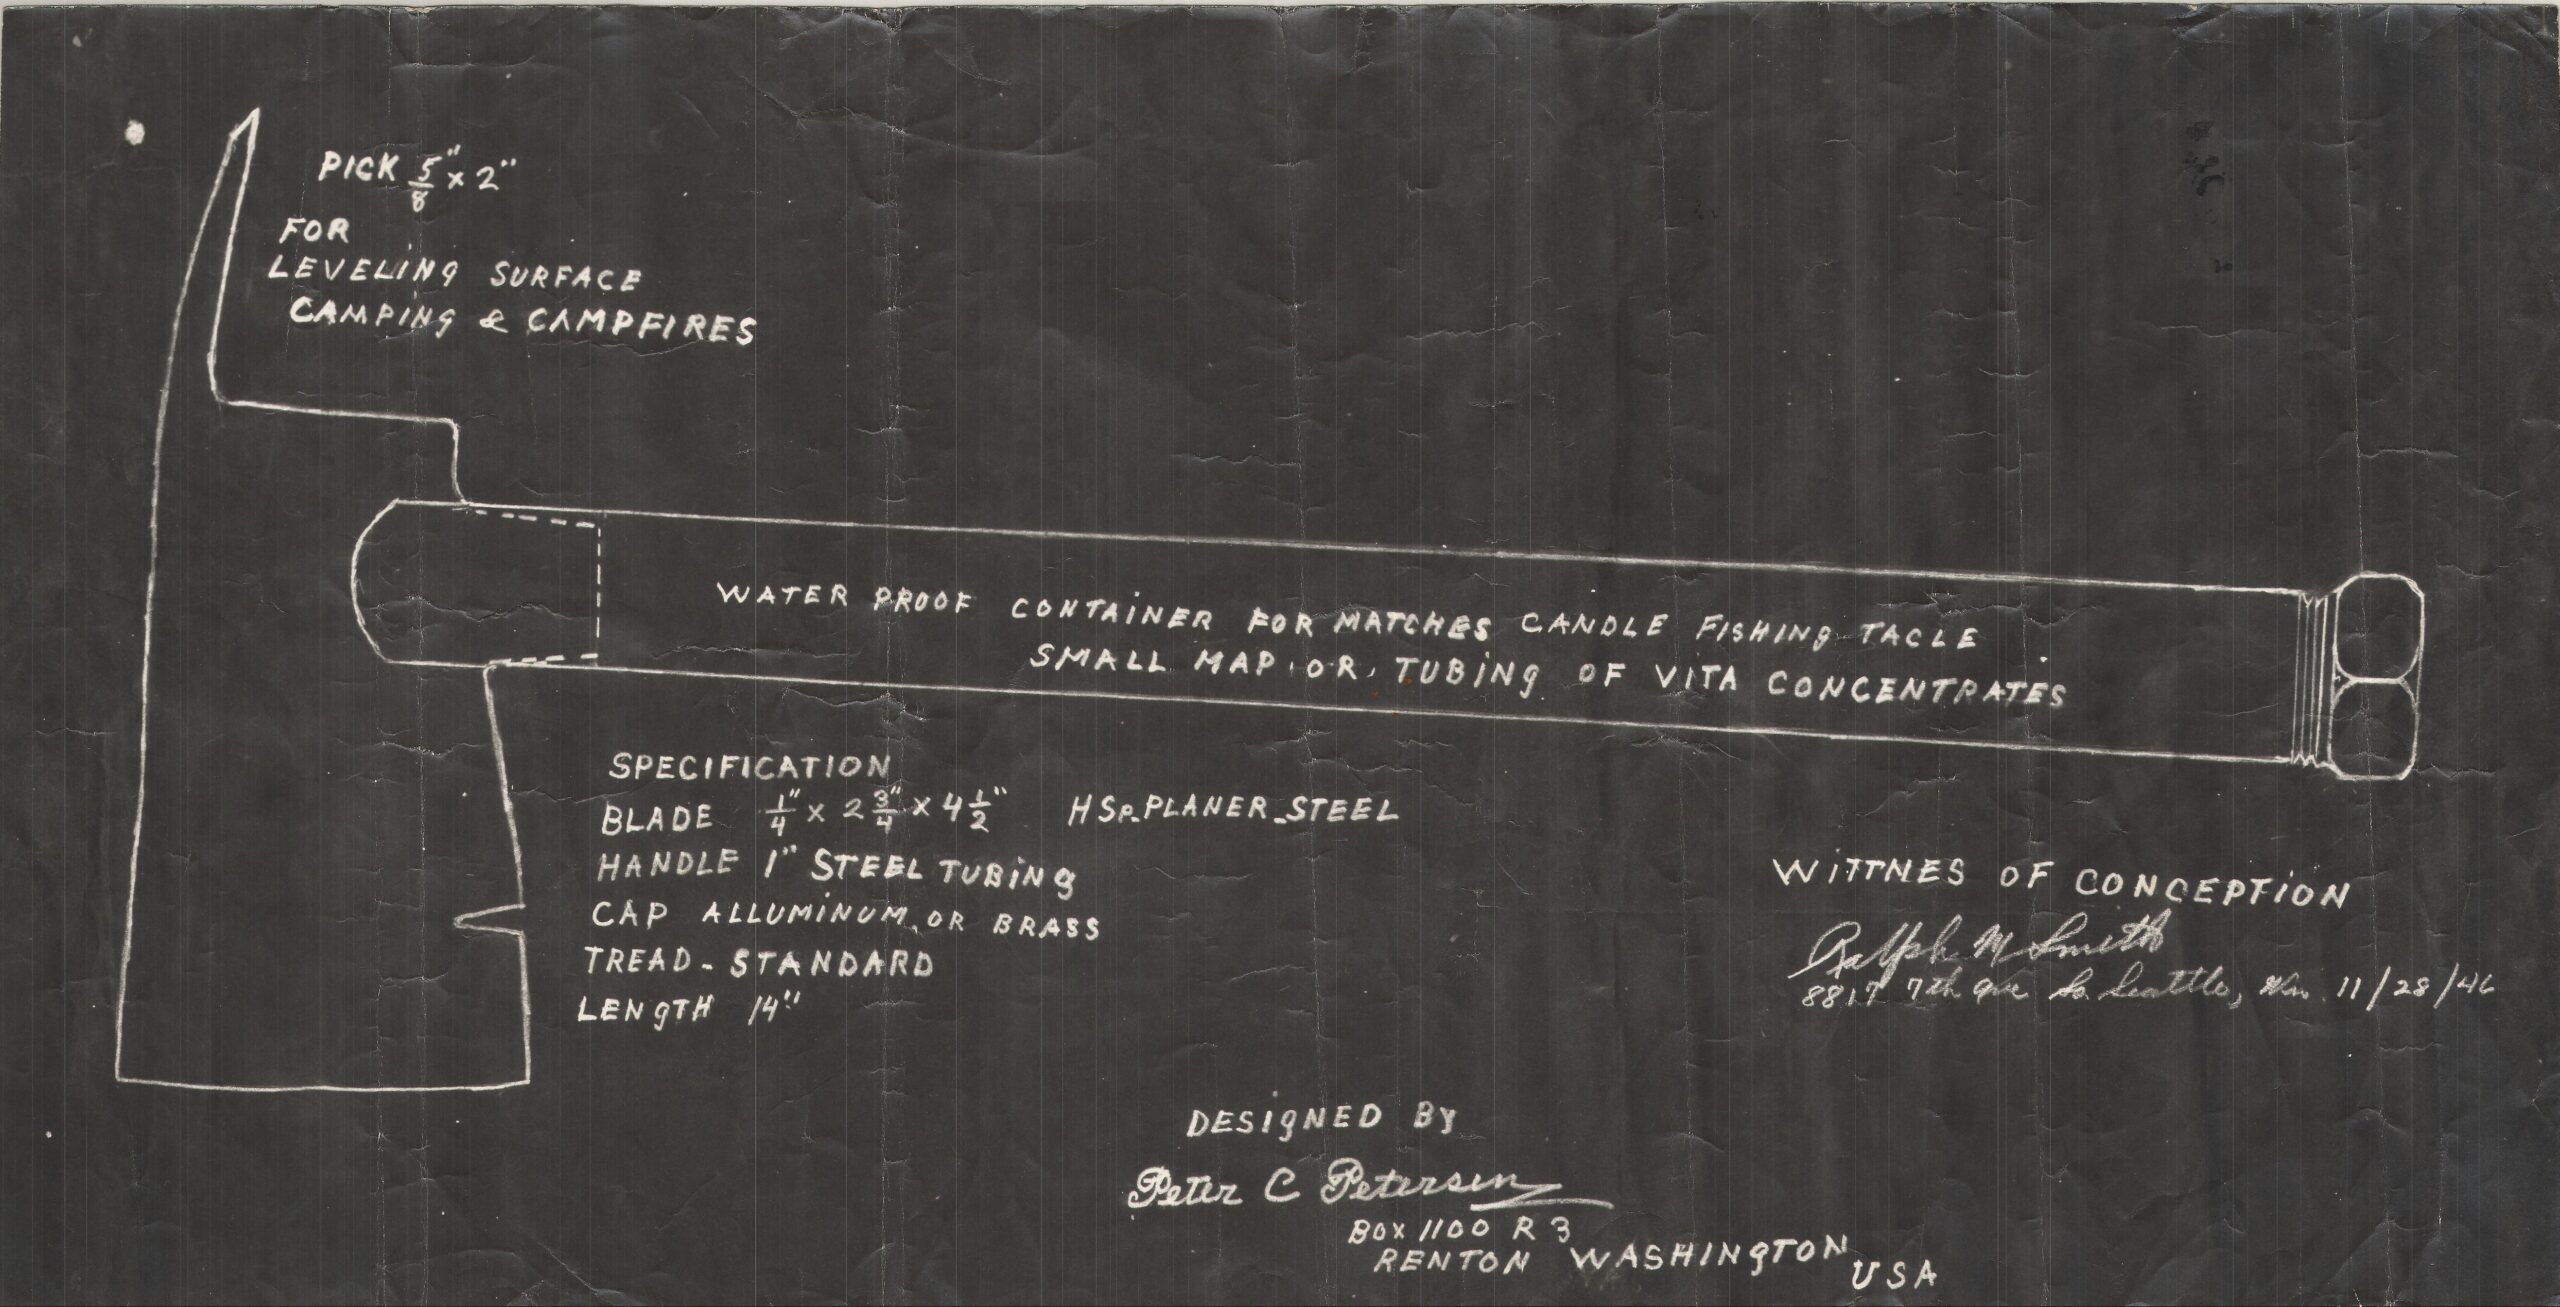 PICK 5/8" x 2"
FOR
LEVELING SURFACE
CAMPING & CAMPFIRES
WATER PROOF CONTAINER FOR MATCHES CANDLE FISHING TACLE
SMALL MAP OR TUBING OF VITA CONCENTRATES
SPECIFICATION
BLADE 1/4" x 2 3/4" x 4 1/2" HSP. PLANER STEEL
HANDLE 1" STEEL TUBING
CAP ALLUMINUM, OR BRASS
TREAD - STANDARD
LENGTH 14"
WITTNES OF CONCEPTION
Ralph M Smith
8817 7th ave So. Seattle, Wn. 11/28/46
DESIGNED BY
Peter C Petersen
BOX 1100 R 3
RENTON WASHINGTON
USA